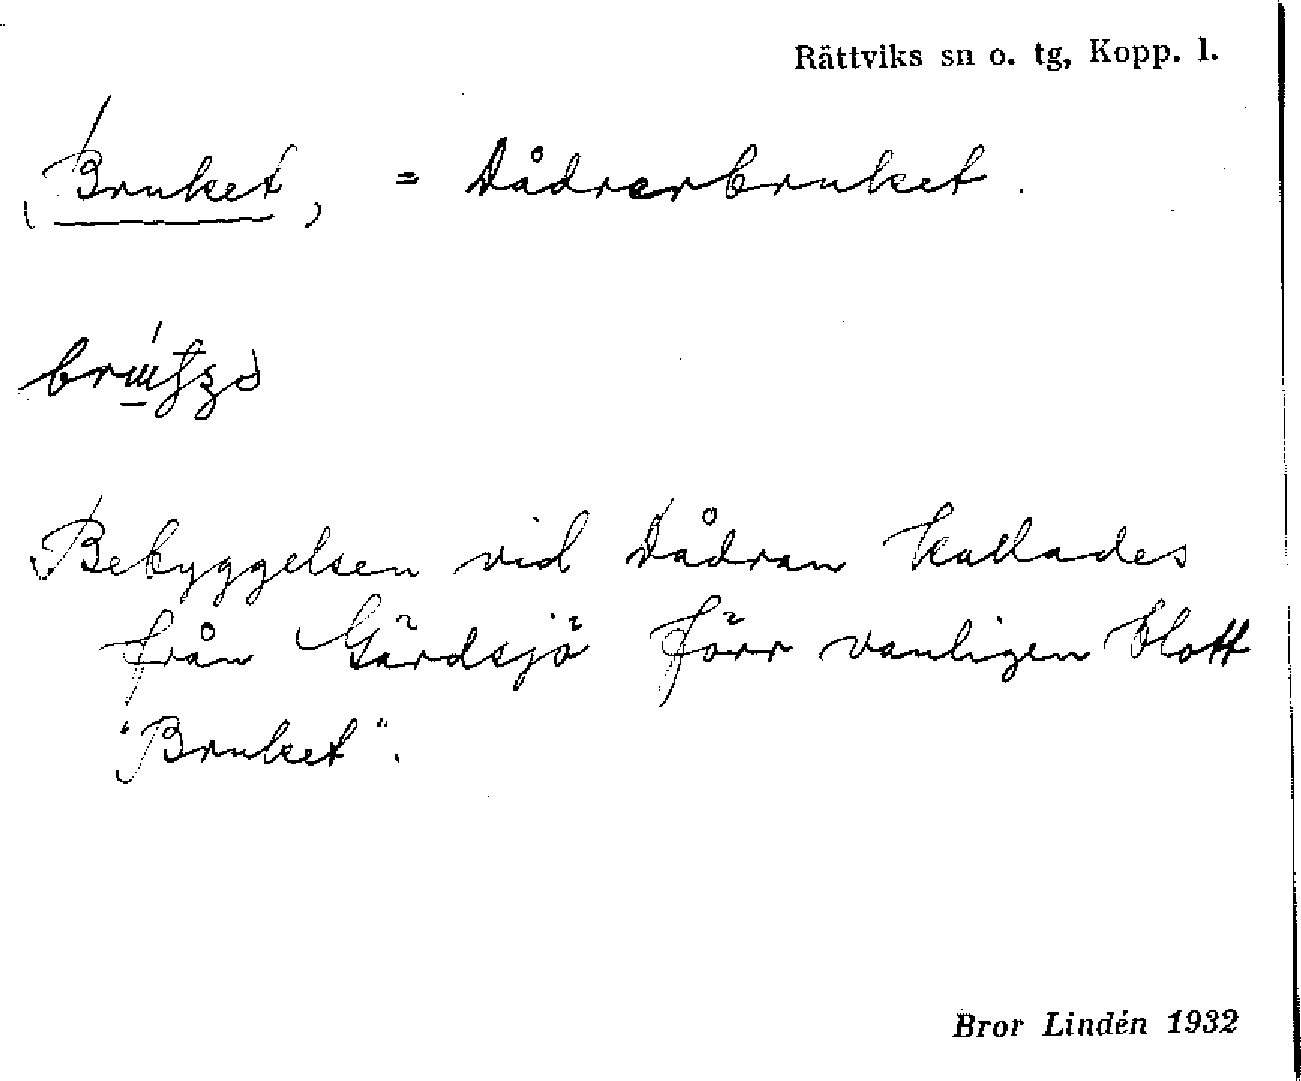 Rättviks sn o. tg, Kopp. l.
Bruket, = Dådrarbruket.
Bebyggelsen vid Dådran kallades
från Gärdsjö förr vanligen blott
"Bruket".
Bror Lindén 1932